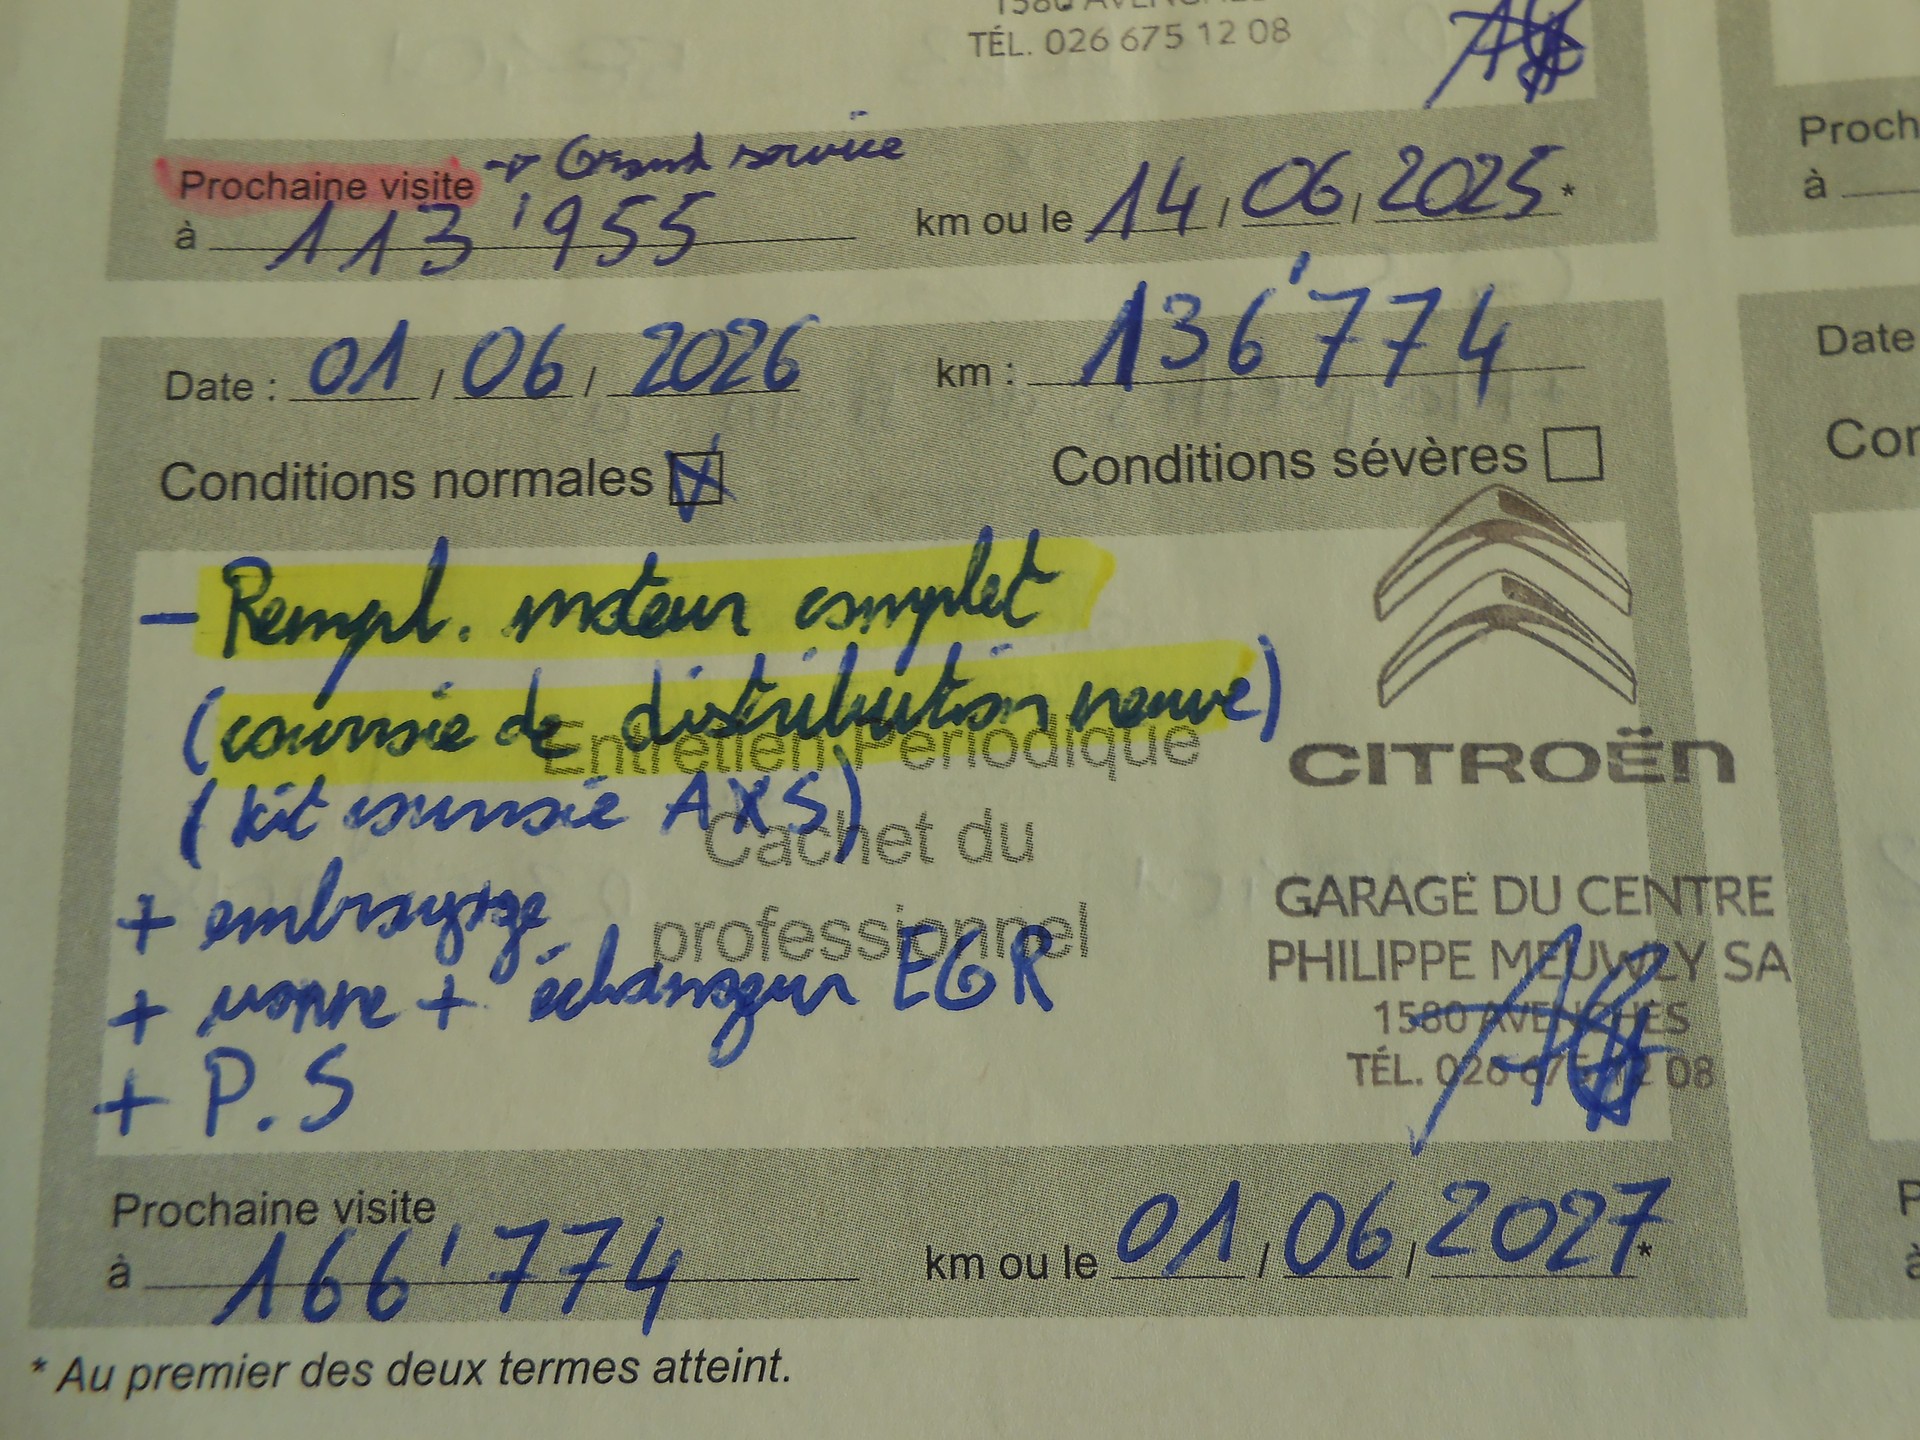 TÉL. 026 675 12 08
Prochaine visite → Grand service
à 113'955 km ou le 14/06/2025*
Proch
à
Date : 01/06/2026 km : 136'774
Date
Conditions normales Conditions sévères
Cor
- Rempl. moteur complet
(courroie de distribution neuve)
Entretien Périodique
CITROËN
(kit courroie AXS)
Cachet du
+ embrayage
professionnel
GARAGE DU CENTRE
PHILIPPE MEUWLY SA
+ vanne + échangeur EGR
1580 AVENCHES
TÉL. 026 675 12 08
+ P.S
Prochaine visite
à 166'774 km ou le 01/06/2027*
* Au premier des deux termes atteint.